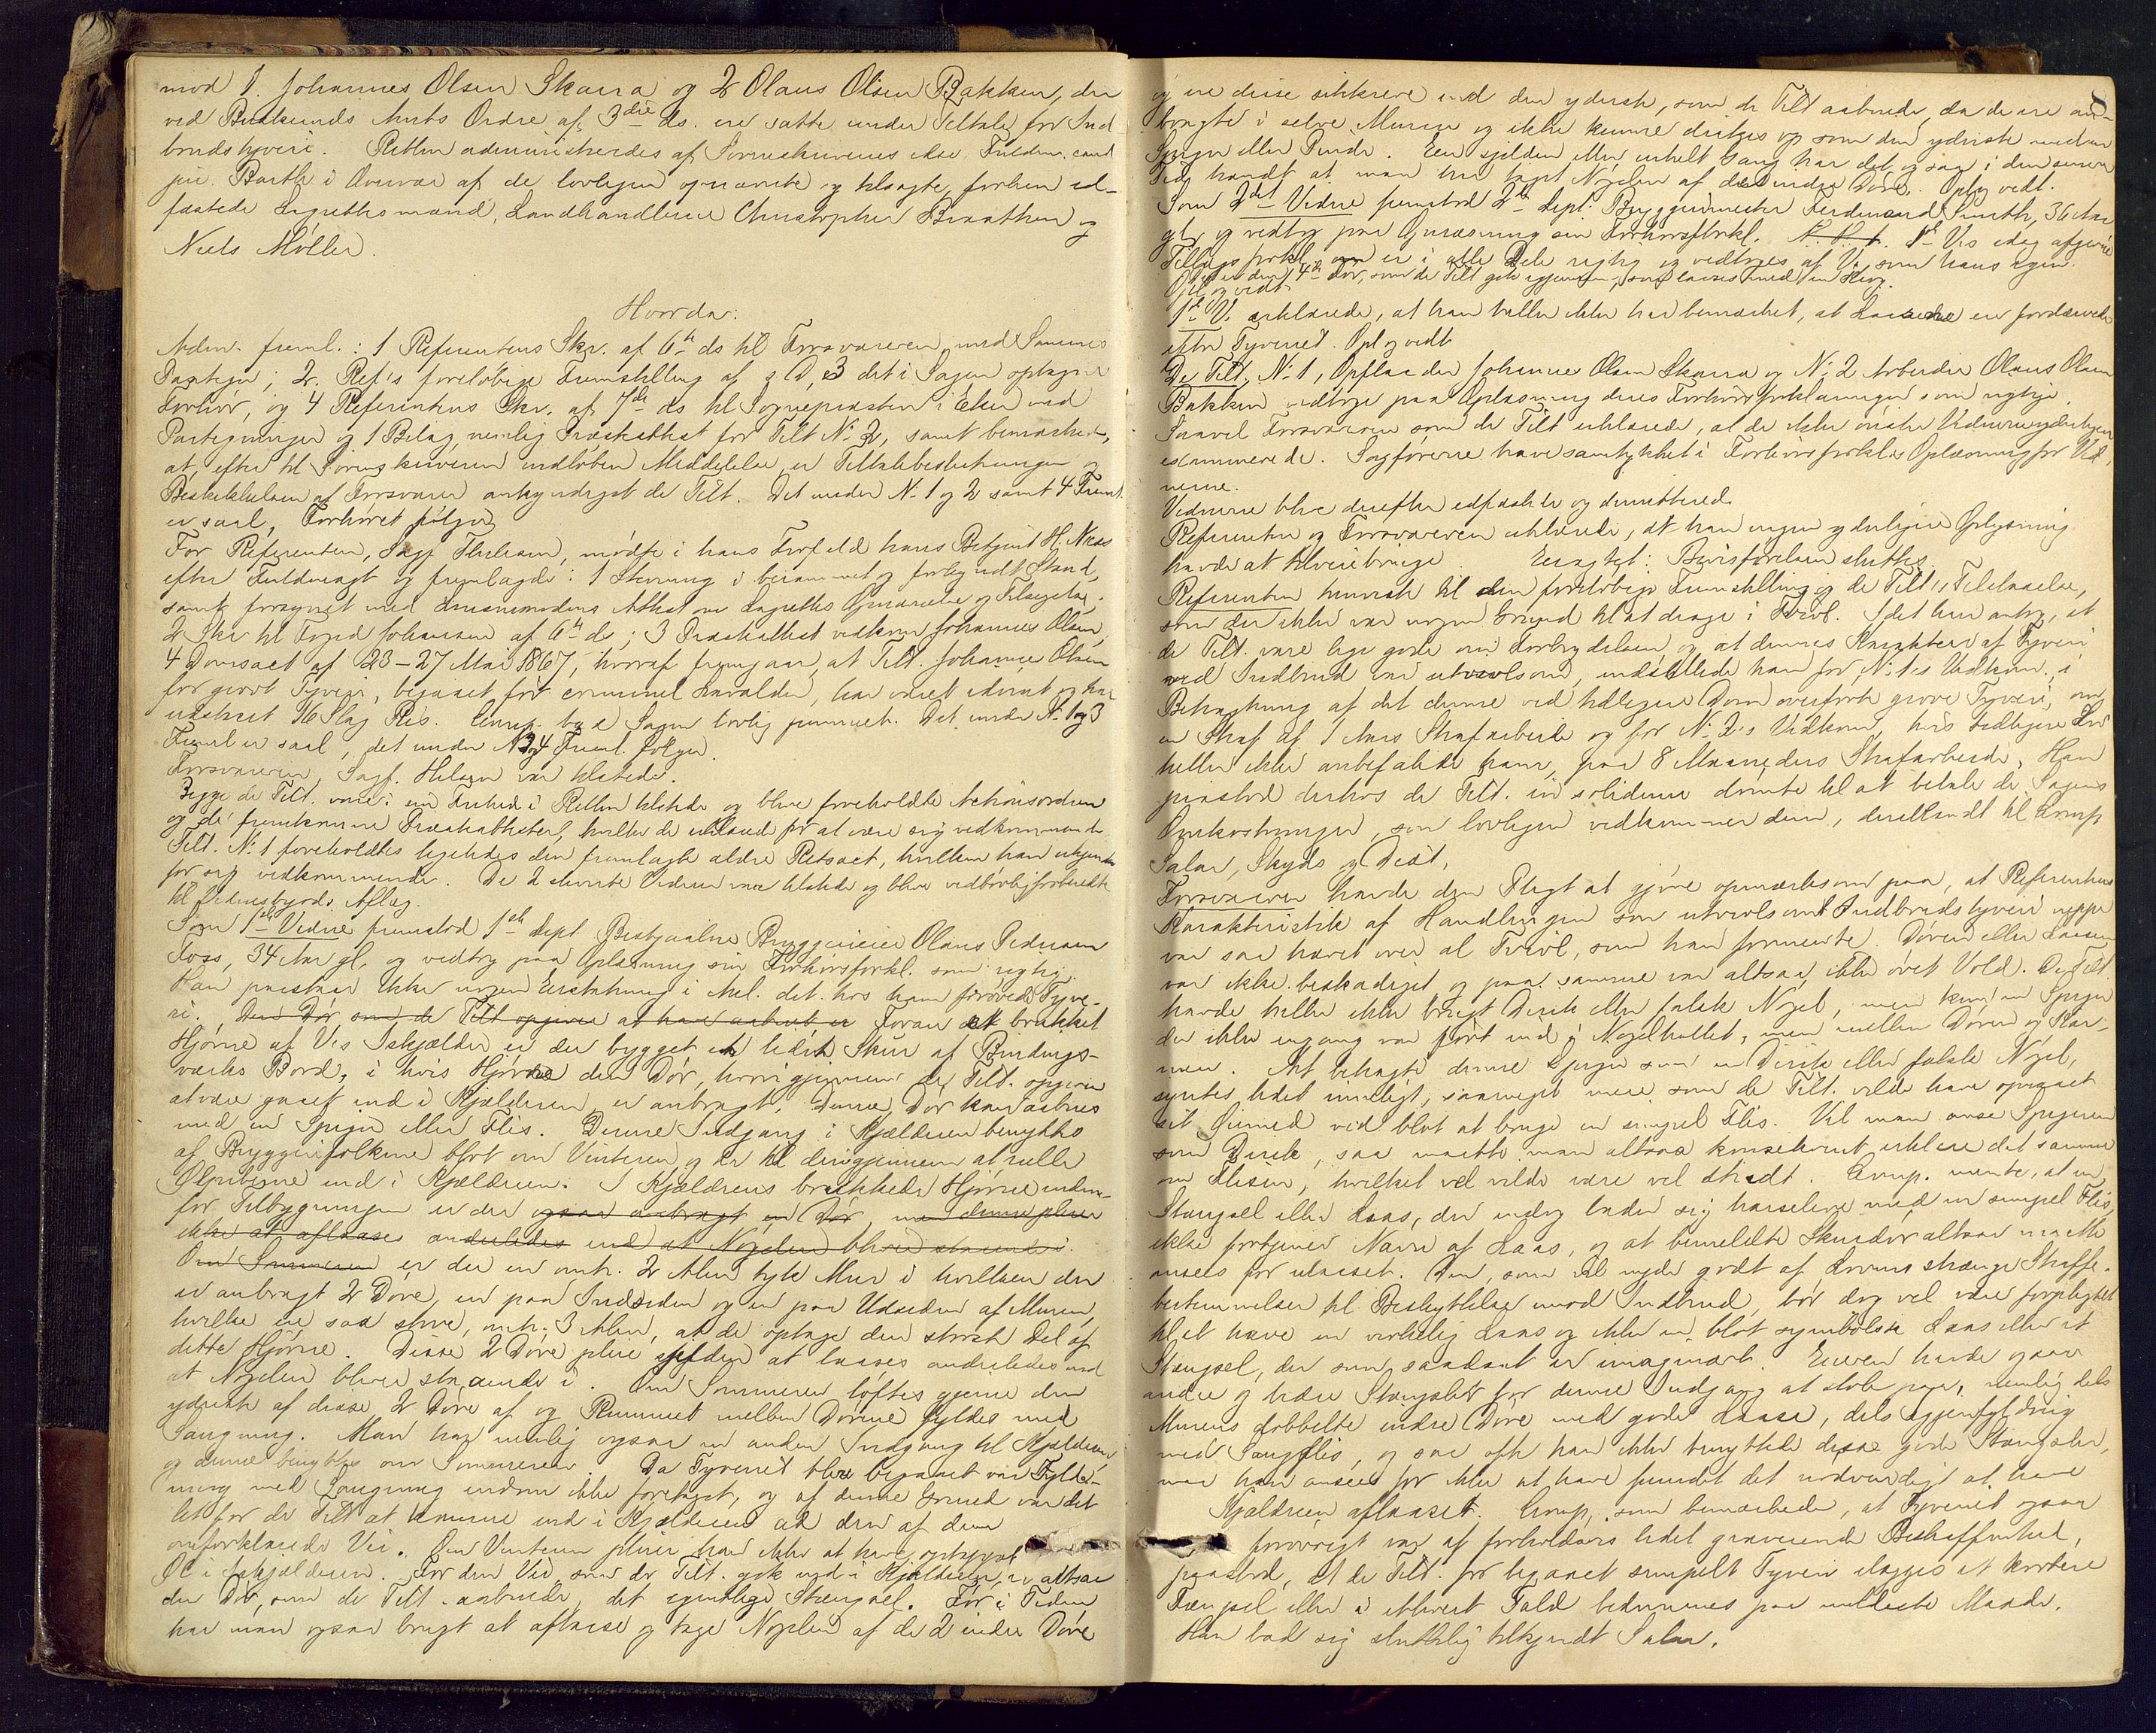 mod 1. Johannes Olsen Skara og 2 Olaus Olsen Bakken, der
ved Buskeruds Amts Ordre af 3die ds. ere satte under Tiltale for Ind
brudstyveri. Retten administreredes af Sorenskriverens Fuldm. cand
jur. Barth i Overvær af de lovligen opnævnte og tilsagte, forhen ed-
fæstede Lagrettesmænd, Landhandlerne Christopher Braathen og
Niels Møller.
Hvorda:
Adm. freml.: 1 Referentens Skr. af 6te ds til Forsvareren med Sammes
Paategn; 2. Ref's foreløbige Fremstilling af s. D, 3 det i Sagen optagne
Forhør, og 4 Referentens Skr. af 7de ds til Sognepræsten i Eker med
Paategninger og 1 Bilag, nemlig Præsteattest for Tilt No 2, samt bemærkede,
at, efter til Sorenskriveren indløben Meddelelse, er Tiltalebeslutningen og
Beskikkelsen af Forsvarer forkyndt de Tilt. Det under No 1 og 2 samt 4 Freml.
er saal, Forhøret følger
For Referenten, Sagf mødte i hans Forfald hans Betjent H. Næss
efter Fuldmagt og fremlagde: 1 Stevning i berammet og forkyndt Stand,
samt forsynet med Lensmandens Attest om Lagrettes Opnævnelse og Tilsigelse.
2 Skr til Foged Johansen af 6te ds; 3 Præsteattest vedkom Johannes Olsen,
4 Domsact af 23-27 Mai 1867, hvoraf fremgaar, at Tilt. Johannes Olsen
for grovt Tyveri, begaaet før criminel Lavalder, har været idømt og har
udstaaet 16 Slag Ris. Comp. bad Sagen lovlig fremmet. Det under No 1 og 3
Freml er saal, det under No 2 og 4 Freml. følger.
Forsvareren, Sagf. Helgesen var tilstede.
Begge de Tilt. vare i sin Frihed i Retten tilstede og bleve foreholdte Actionsordren
og de fremkomne Præsteattester, hvilke de erklærede for at være sig vedkommende
Tilt. No 1 foreholdtes ligeledes den fremlagte ældre Retsact, hvilken han erkjendte
for sig vedkommende. De 2 stevnte Vidner vare tilstede og bleve vedbørlig forberedte
til Vidnesbyrds Aflæg.
Som 1ste Vidne fremstod 1ste dept. Bestjaalne Bryggerieier Olaus Pedersen
Foss, 34 Aar gl. og vedtog paa Oplæsning sin Forhørsforkl. som rigtig.
Han paastaar ikke nogen Erstatning i Anl. det hos ham forøvede Tyve-
ri. Den Dør som de Tilt opgive at have aabnet er Foran det brukket
Hjørne af V's Iskjælder er der bygget et lidet Skur af Bindings-
værks Bord, i hvis Hjørne den Dør, hvorigjennem de Tilt. opgive
at være gaaet ind i Kjælderen, er anbragt. Denne Dør kan aabnes
med en Spiger eller Flis. Denne Indgang i Kjælderen benyttes
af Bryggerifolkene blot om Vinteren og da til derigjennem at rulle
Ølpiberne ind i Kjælderen. I Kjælderens brækkede Hjørne inden-
for Tilbygningen er der ogsaa anbragt en Dør, men denne pleier
ikke at aflaases anderledes end at Nøglen bliver staaende i.
Om Sommeren er der en omtr. 2 Alen tyk Mur i hvilken der
er anbragt 2 Døre, en paa Indsiden og en paa Udsiden af Muren,
hvilke ere saa store, omtr. 3 Alen, at de optage den største Del af
dette Hjørne. Disse 2 Døre pleie sjelden at laases anderledes end
at Nøglen bliver staaende i. Om Sommeren løftes gjerne den
yderste af disse 2 Døre af og Rummet mellem Dørene fyldes med
Saugmug. Man har nemlig ogsaa en anden Indgang til Kjælderen,
og denne benyttes om Sommeren. Da Tyveriet blev begaaet var Fyld-
ning med Saugmug endnu ikke foretaget, og af denne Grund var det
let for de Tilt at komme ind i Kjælderen ad den af dem
omforklarede Vei. Om Vinteren pleier han ikke at have oplagt
Øl i Iskjælderen. For den Vei, som de Tilt. gik ind i Kjælderen, er altsaa
den Dør, som de Tilt. aabnede, det egentlige Stængsel. Før i Tiden
har man ogsaa brugt at aflaase og tage Nøglen af de 2 indre Døre
8
og ere disse sikkrere end den yderste, som de Tilt aabnede, da de ere an-
bragte i selve Muren og ikke kunne dirkes op som den yderste med en
Spiger eller Pinde. Een sjelden eller enkelt Gang har det og saa i den senere
Tid hændt at man har taget Nøglen af de indre Døre. Oplæst vedt.
Som 2det Vidne fremstod 2de dept. Bryggerimester Ferdinand Smith, 36 Aar
gl. og vedtog paa Oplæsning sin Forhørsforkl. 1ste V's idag afgivne
Tillægsforkl er i alle Dele rigtig og vedtages af V. som hans egen.
Det er den 4de Dør, som de Tilt gik igjennem, som laases med en Krog.
Opl og vedt
1ste V. erklærede, at han heller ikke har bemærket, at Laasene ere fordærvede
efter Tyveriet. Opl og vedt
De Tilt, No 1, Opflaaer Johannes Olsen Skara og No 2 Arbeider Olaus Olsen
Bakken vedtoge paa Oplæsning deres Forhørsforklaringer som rigtige.
Saavel Forsvareren som de Tilt erklærede, at de ikke ønske Vidnerne yderligere
examinerede. Sagførerne have samtykket i Forhørsforkl. Oplæsning for Vid
nerne.
Vidnerne bleve derefter edfæstede og dimitterede.
Referenten og Forsvareren erklærede, at han ingen yderligere Oplysning
havde at tilveiebringe. Eragtet: Bevisførelsen sluttes.
Referenten henviste til den foreløbige Fremstilling og de Tilt's Tilstaaelse,
som der ikke var nogen Grund til at drage i Tvivl. Idet han antog, at
de Tilt. vare lige gode om Forbrydelsen, og at dennes Karakter af Tyveri
ved Indbrud var utvivlsom, indstillede han for No 1's Vedkom., i
Betragtning af det denne ved tidligere Dom overførte grove Tyveri, om
en Straf af 1 Aars Strafarbeide og for No 2's Vedkom., hvis tidligere Liv
heller ikke anbefalede ham, paa 8 Maaneders Strafarbeide. Han
paastod derhos de Tilt. in solidum dømte til at betale de Sagens
Omkostninger, som lovligen vedkommer dem, deriblandt til Comp
Salær, Skyds og Diæt.
Forsvareren havde den Pligt at gjøre opmærksom paa, at Referentens
Karakteristik af Handlingen som utvivlsomt Indbrudstyveri neppe
var saa hævet over al Tvivl, som han formente. Døren eller Laasen
var ikke beskadiget og paa samme var altsaa ikke øvet Vold. De Tilt
havde heller ikke brugt Dirik eller falsk Nøgel, men kun en Spiger
der ikke engang var ført ind i Nøglehullet, men mellem Døren og Kar-
men. At betragte denne Spiger som en Dirik eller falsk Nøgel,
syntes lidet rimeligt, saameget mere som de Tilt. vilde have opnaaet
sit Øiemed ved blot at bruge en simpel Flis. Vil man anse Spigeren
som Dirik, saa maatte man altsaa konsekvent erklære det samme
om Flisen, hvilket vel vilde være vel stridt. Comp. mente, at en
Stængsel eller Laas, der endog lader sig haandtere med en simpel Flis,
ikke fortjener Navn af Laas, og at bemeldte Skurdør altsaa maatte
ansees for ulaaset. Den, som vil nyde godt af Lovens strænge Straffe-
bestemmelser til Beskyttelse mod Indbrud, bør dog vel være forpligtet
til at have en virkelig Laas og ikke en blot symbolsk Laas eller et
Stængsel, der som saadant er imaginært. Eieren havde ogsaa
andre og bedre Stængsler for denne Indgang at stole paa, nemlig dels
Murens dobbelte indre Døre med gode Laase, dels igjenfyldning
med Saugflis, og saa ofte han ikke benyttede disse gode Stængsler,
maa han ansees for ikke at have fundet det nødvendigt at have
Kjælderen aflaaset. Comp., som bemærkede, at Tyveriet ogsaa
forøvrigt var af forholdsvis lidet graverende Beskaffenhed,
paastod, at de Tilt. for begaaet simpelt Tyveri ilægges et kortere
Fængsel eller i ethvert Fald bedømmes paa mildeste Maade.
Han bad sig sluttelig tilkjendt Salær.